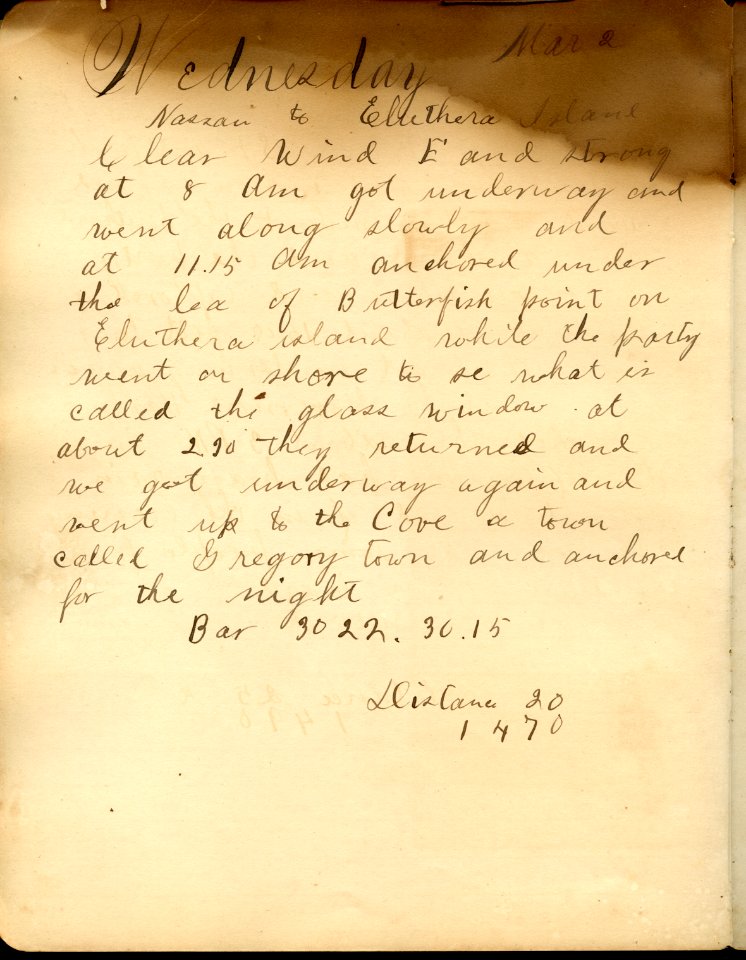 Wednesday Mar 2
Nassau to Eluthera Island
Clear Wind E and strong
at 8 Am got underway and
went along slowly and
at 11.15 Am anchored under
the lea of Butterfish point on
Eluthera island while the party
went on shore to se what is
called the glass window at
about 2 30 they returned and
we got underway again and
went up to the Cove a town
called Gregory town and anchored
for the night
Bar 30 22. 30.15
Distance 20
1470